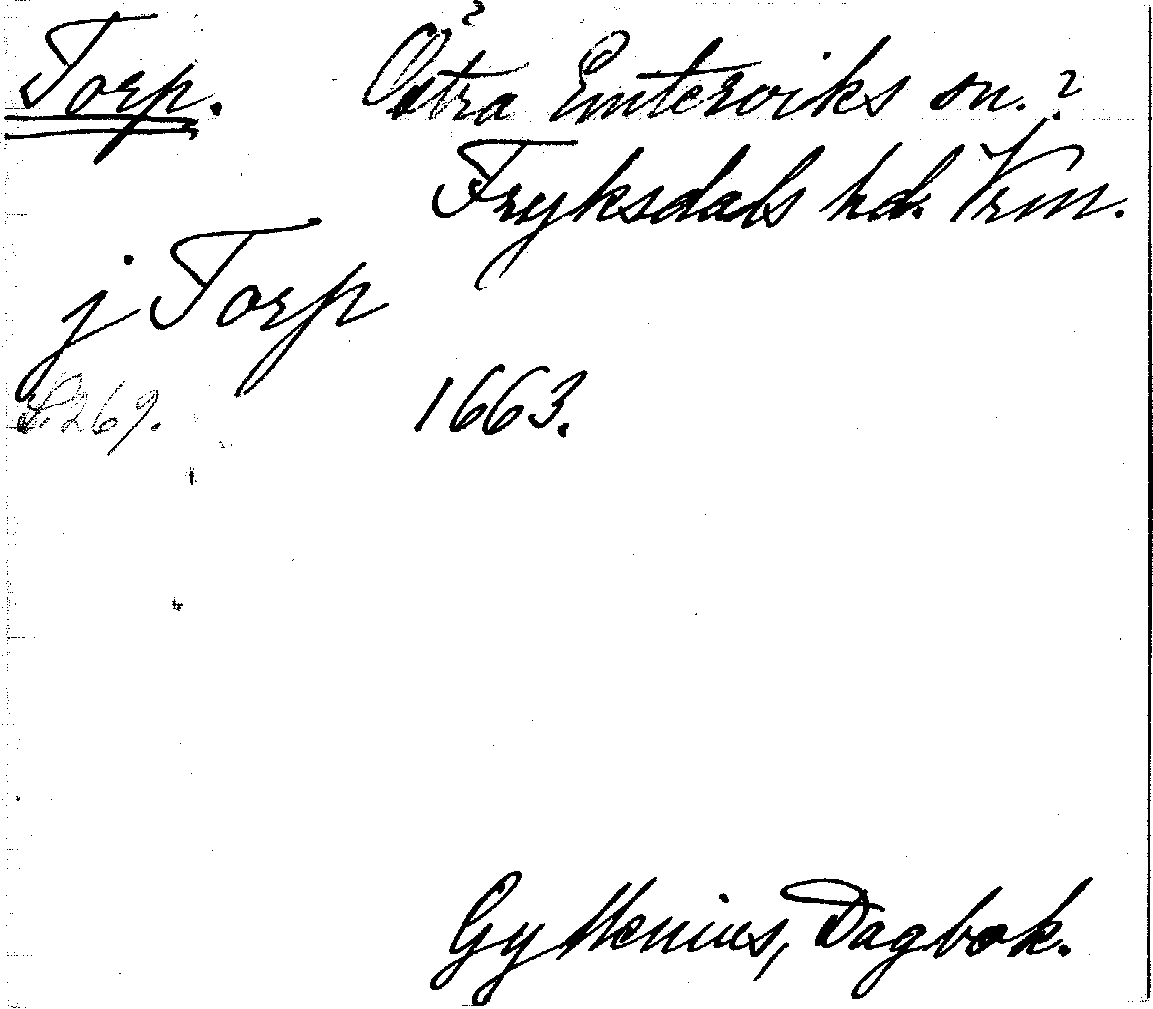 Torp. Östra Emterviks sn.?
Fryksdals hd. Vrm.
j Torp
S. 269. 1663.
Gyllenius, Dagbok.